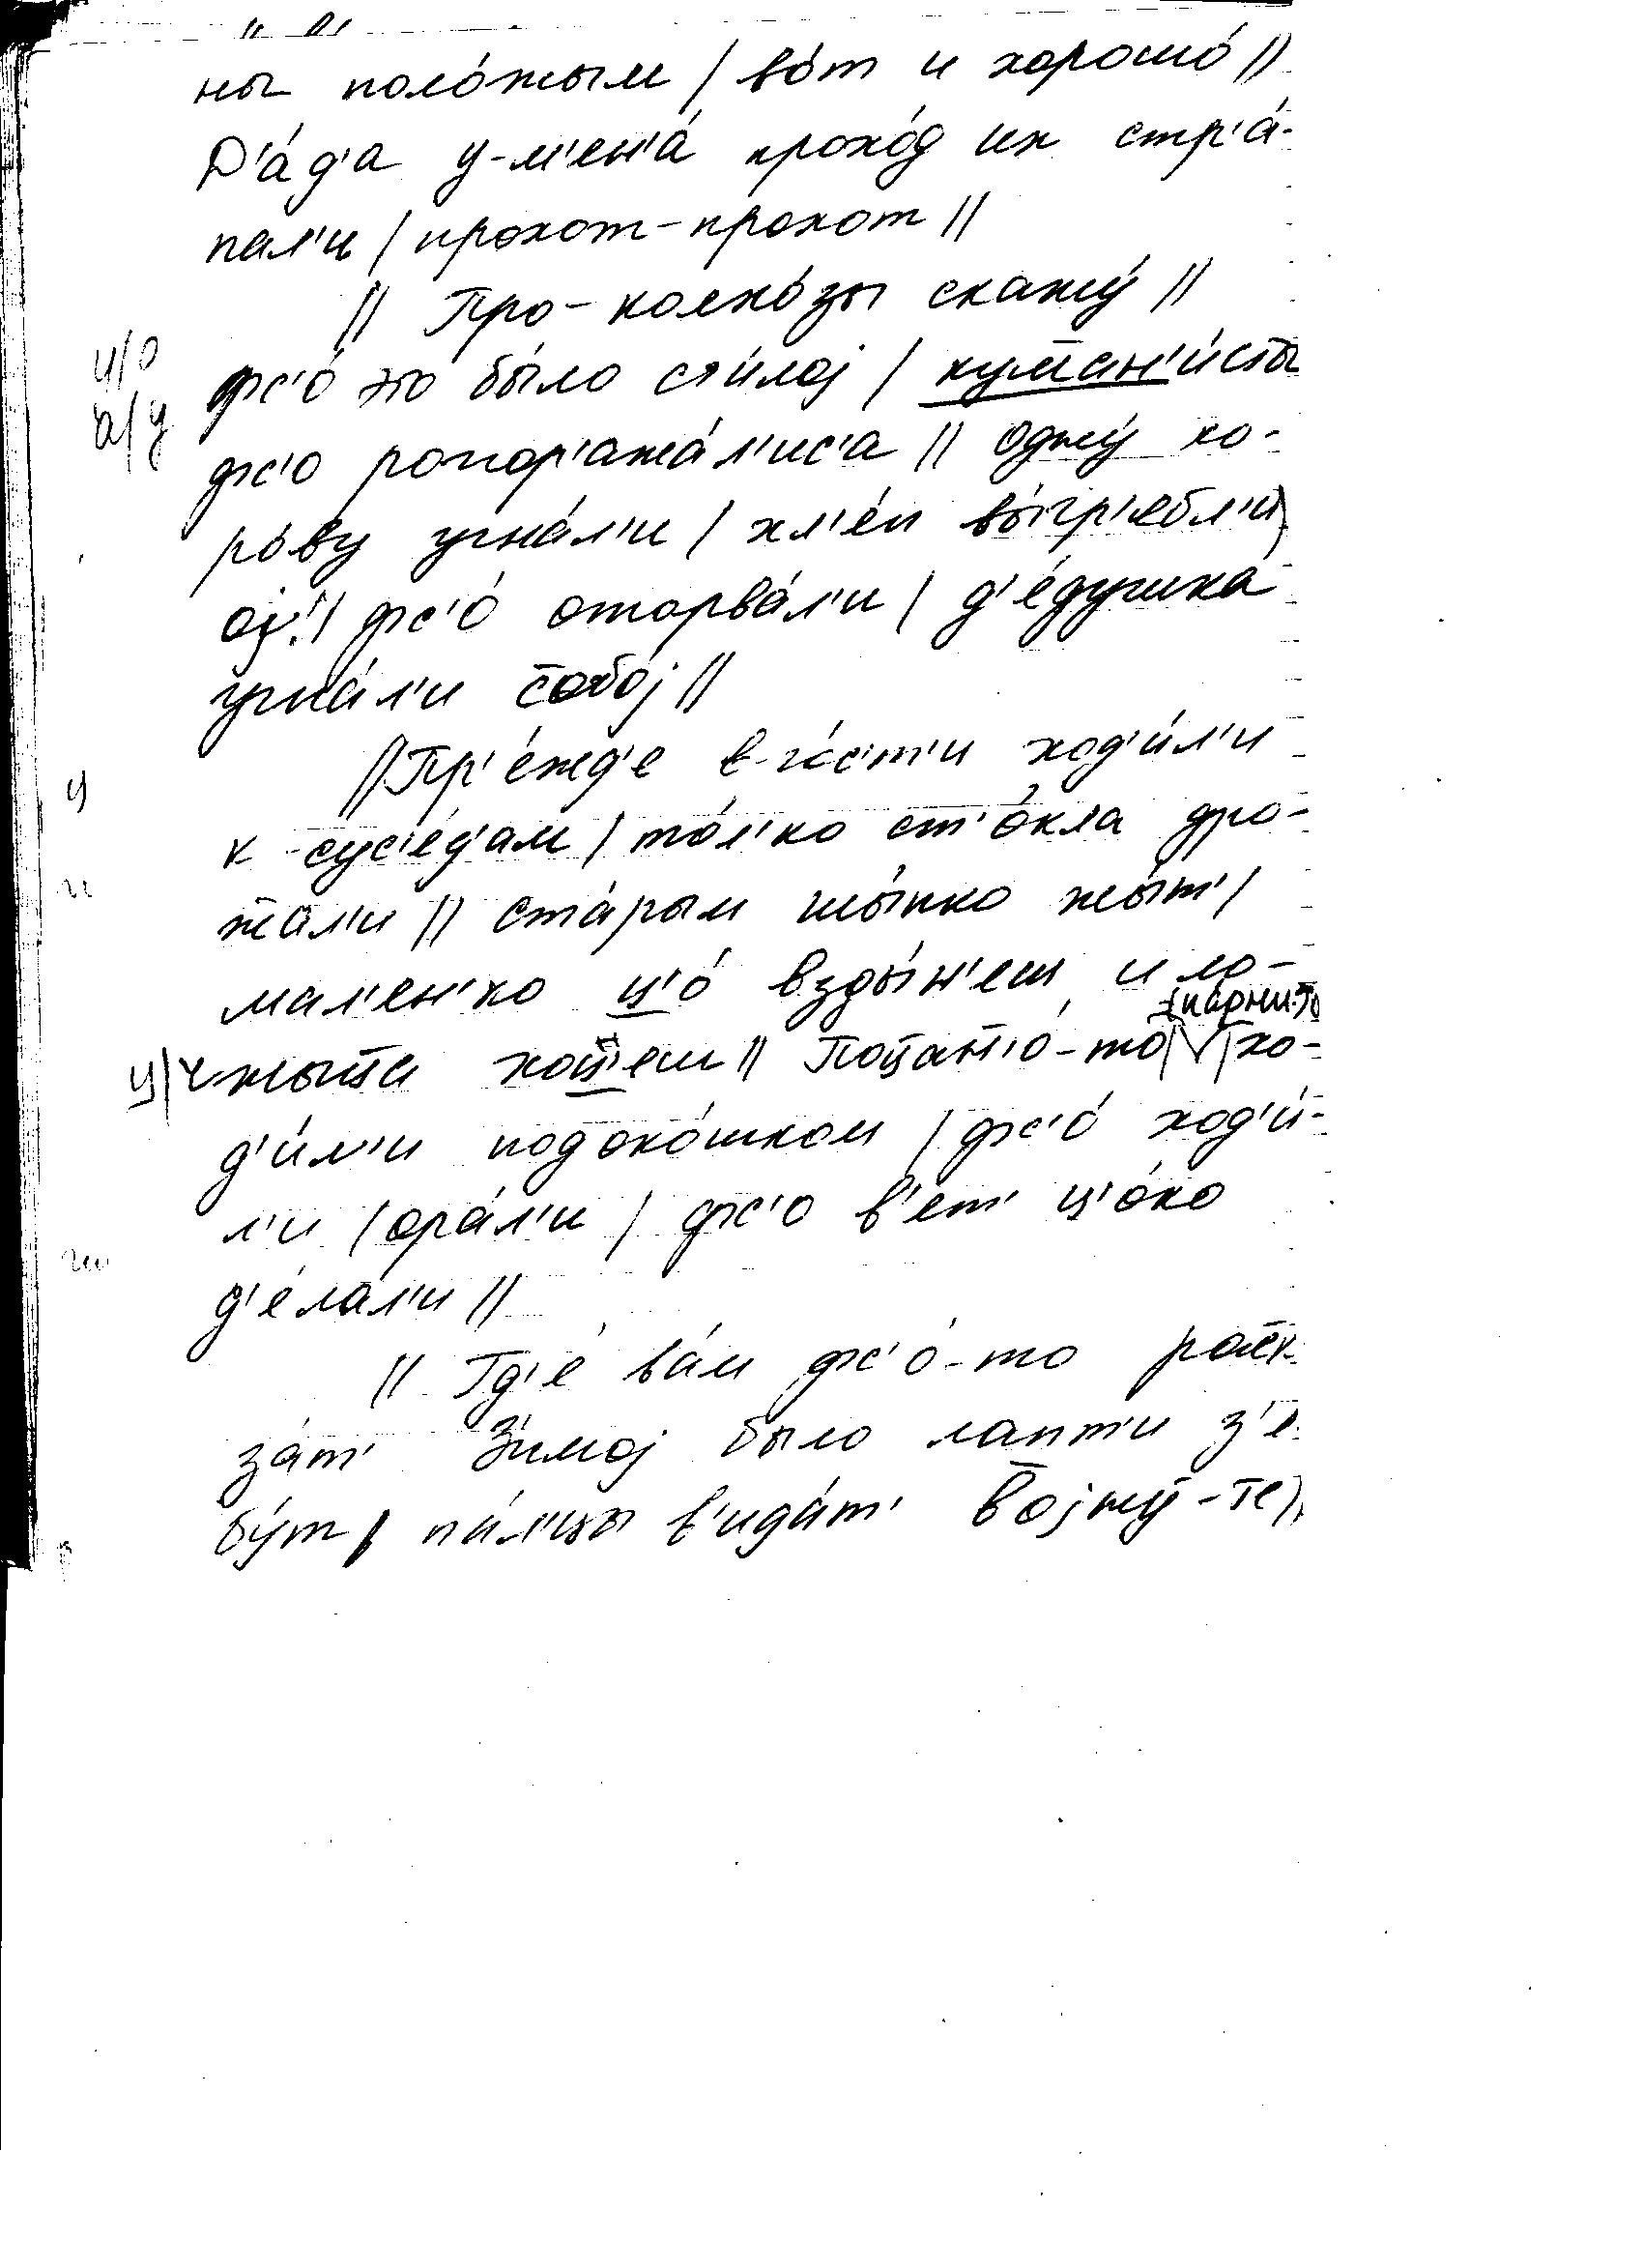 ны поло́жым / во́т и хорошо́ //
Д'а́д'а у-м'ен'а́ прохо́д их стр'а́-
пал'и / прохот-прохот //
// Про-колхо́зы скажу́ //
у/о
фс'о́ это бы́ло си́лоj / кум̄ан'и́сты
а/у
фс'о роспор'ажа́л'ис'а // одну́ ко-
ро́ву угна́л'и / хл'е́п вы́гр'ебл'и /
оj! / фс'о́ оторва́л'и / д'е́душка
угна́л'и с̄обо́j //
// Пр'е́жд'е в-го́с'т'и ход'и́л'и
у
к-сус'е́д'ам / то́л'ко ст'о́кла дро-
жал'и // ста́рым шы́пко жы́т' /
мал'ен'ко ц'о́ взды́н'еш и ло-
(парни-то
ц/ч
жыц̄а хоц̄'еш // Поц̄ан'́о-то / V / хо-
д'и́л'и подоко́шком / фс'о́ ход'и́-
л'и / ора́л'и / фс'о в'ет' ц'о́ко
д'е́лал'и //
// Гд'е́ ва́м фс'о́-то раск-
за́т' Зимоj было лапти з'е
бу́т / па́л'цы в'ида́т' Воjну́-те /